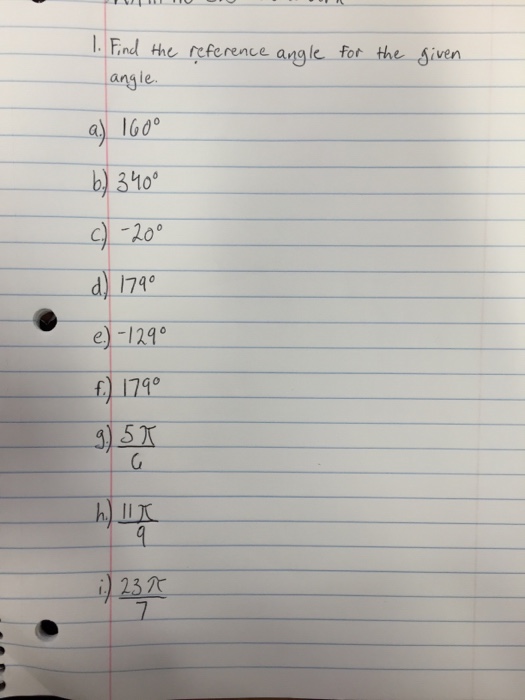 1. Find the reference angle for the given
angle.
a.) 160°
b.) 340°
c.) -20°
d.) 179°
e.) -129°
f.) 179°
g.) 5π
6
h.) 11π
9
i.) 23π
7